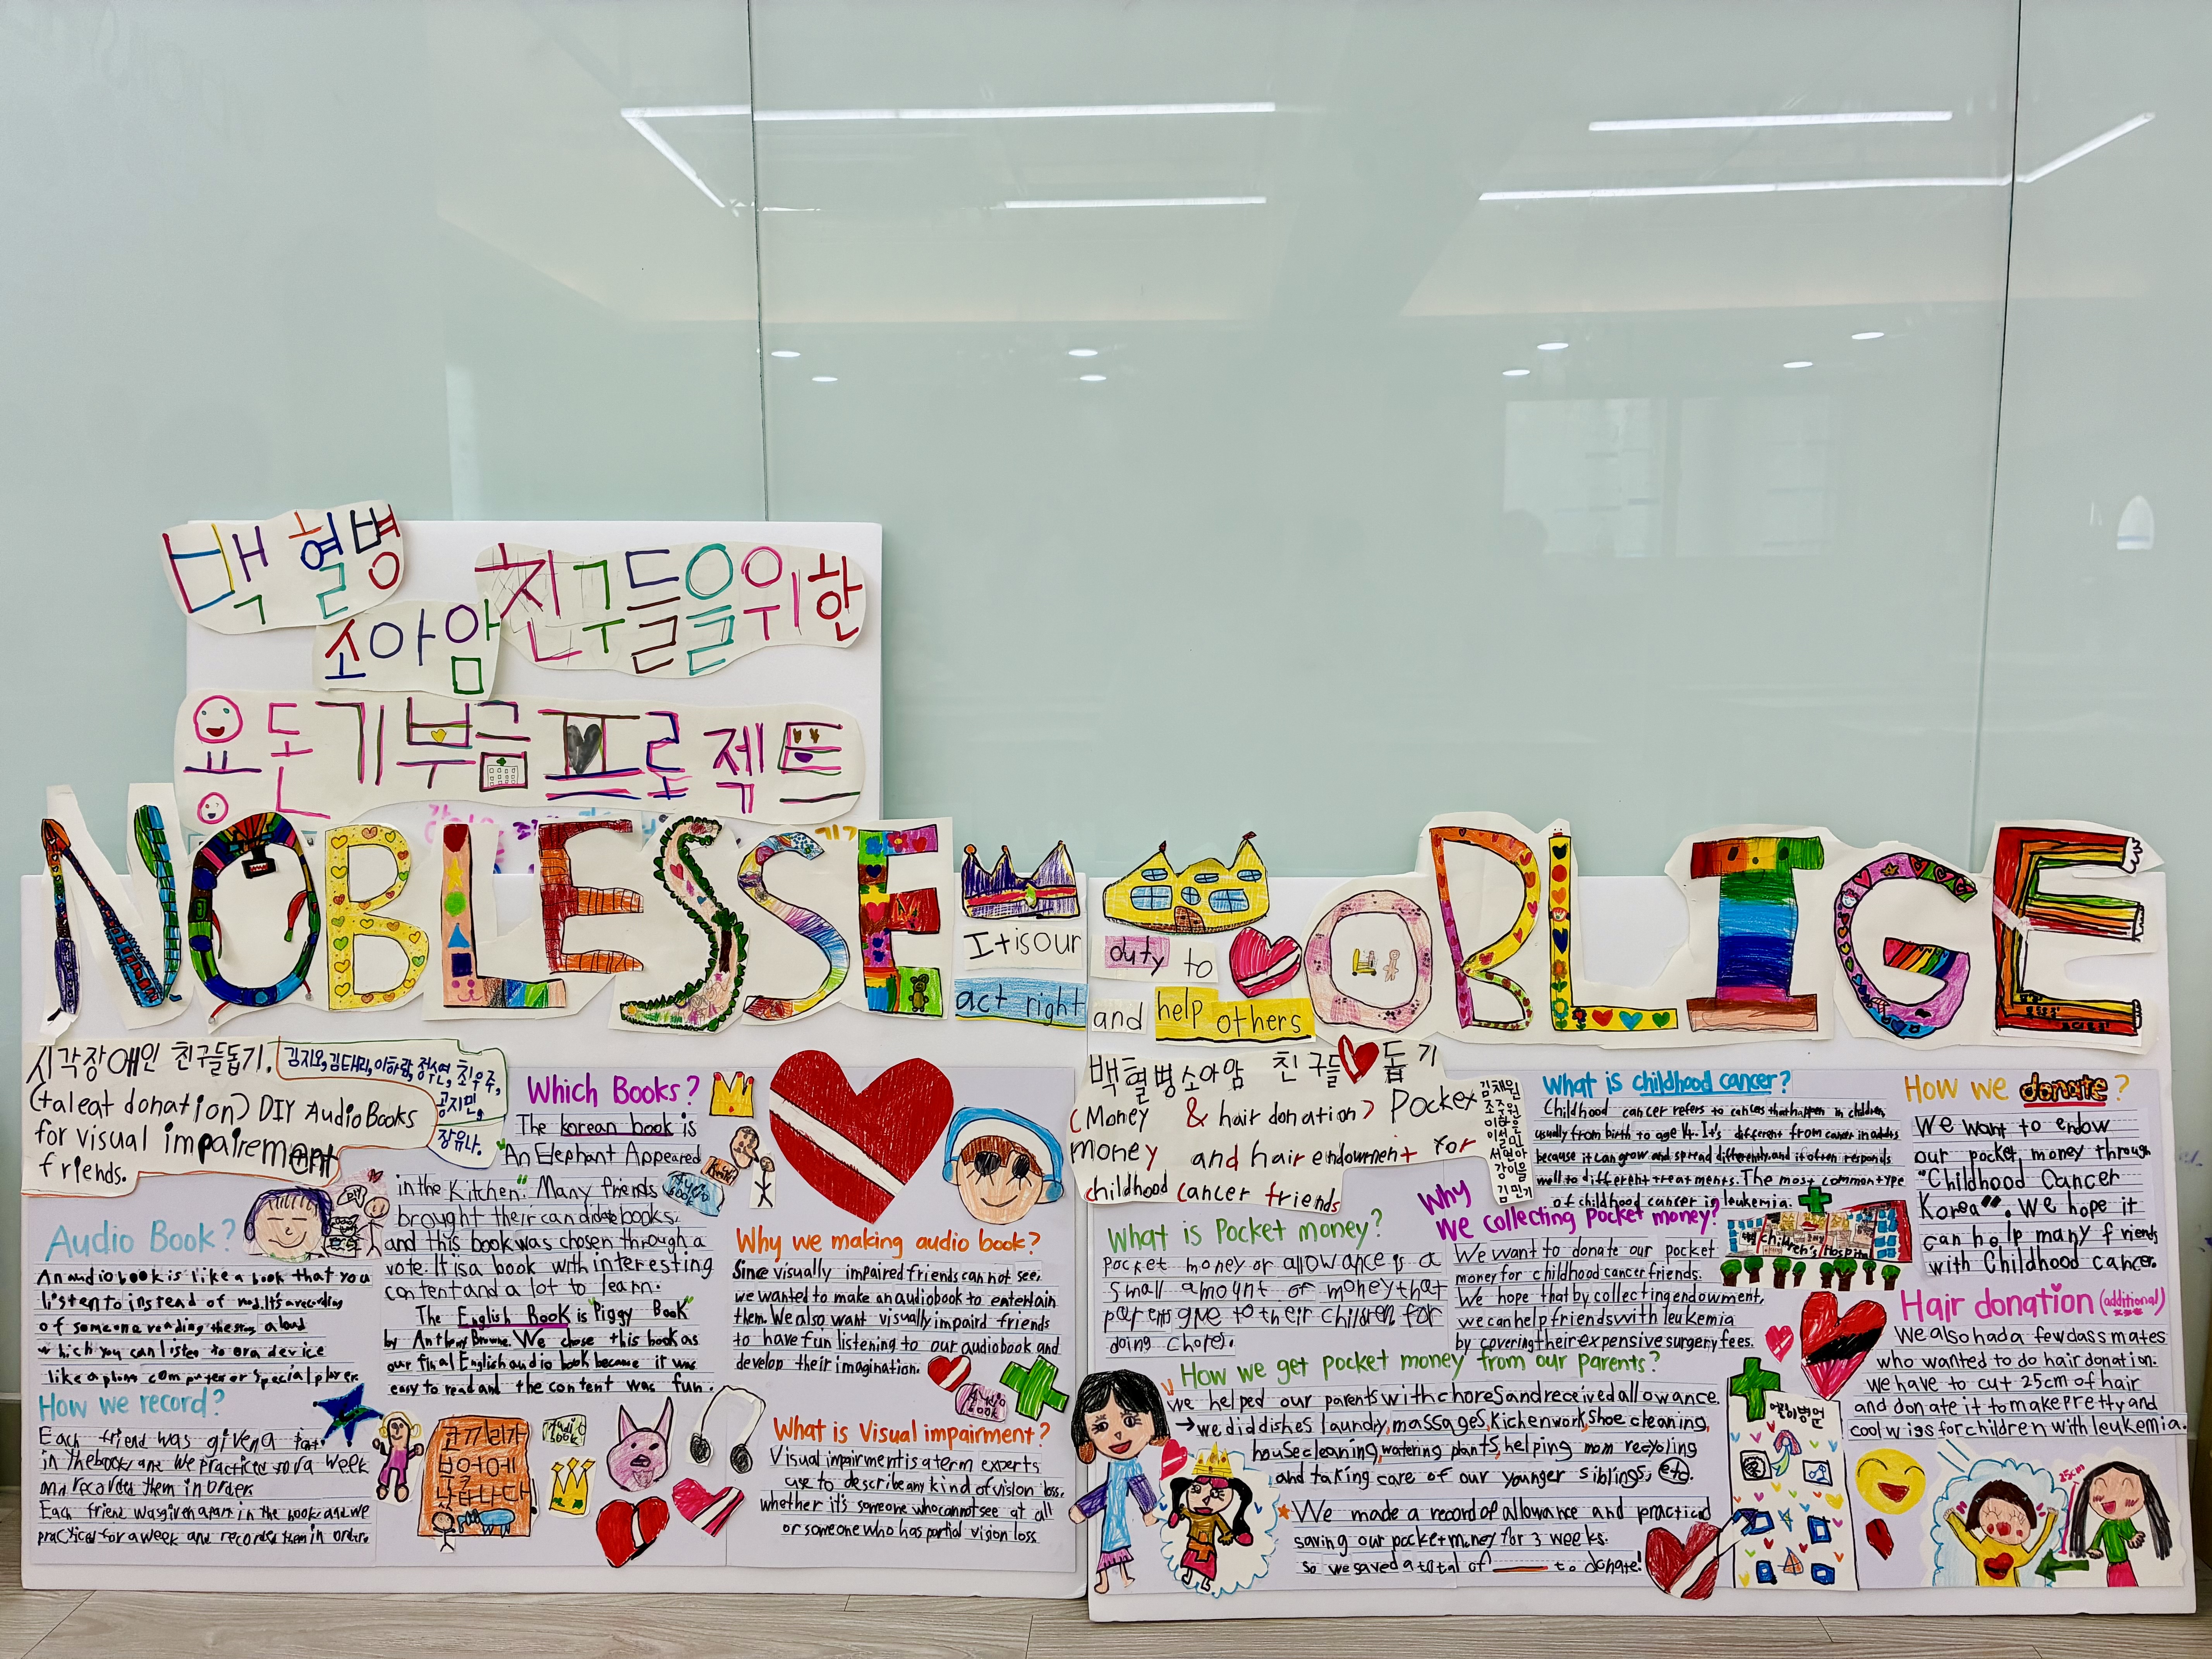 백혈병
소아암
친구들을위한
용돈기부금프로젝트
NOBLESSE
OBLIGE
It is our
act right
duty to
and help others
시각장애인 친구들돕기.
(taleat donation) DIY AudioBooks
for visual impairement
friends.
김지오,김태리,이하람,정수연,최우주,
공지민,
장유나.
Audio Book?
An audiobook is like a book that you
listen to instead of read. It's a recording
of someone reading the story aloud
which you can listen to on a device
like a phone computer or special player.
How we record?
Each friend was given a part
in the book and we practiced for a week
and recorded them in order.
Each friend was given apart in the book and we
practiced for a week and recorded them in order.
Which Books?
The korean book is
"An Elephant Appeared
in the Kitchen". Many friends
brought their candidate books,
and this book was chosen through a
vote. It is a book with interesting
content and a lot to learn.
The English Book is "Piggy Book"
by Anthony Browne. We chose this book as
our final English audio book because it was
easy to read and the content was fun.
코끼리가
부엌에
나타나다
Audio
book
Audio
book
Why we making audio book?
Since visually impaired friends can not see,
we wanted to make an audiobook to entertain
them. We also want visually impaird friends
to have fun listening to our audiobook and
develop their imagination.
Audio
book
What is Visual impairment?
Visual impairment is a term experts
use to describe any kind of vision loss,
whether it's someone who cannot see at all
or someone who has partial vision loss
백혈병소아암 친구들 돕기
(Money & hair donation) Pocket
money and hair endowment for
childhood cancer friends
What is Pocket money?
Pocket money or allowance is a
small amount of money that
parents give to their children for
doing chores.
Why
We collecting pocket money?
We want to donate our pocket
money for childhood cancer friends.
We hope that by collecting endowment,
we can help friends with leukemia
by covering their expensive surgery fees.
How we get pocket money from our parents?
We helped our parents with chores and received allowance.
→we did dishes laundry, massages, kichen work, shoe cleaning,
house cleaning, watering plants, helping mom recycling
and taking care of our younger siblings, etc.
We made a record of allowance and practiced
saving our pocket money for 3 weeks.
so we saved a total of ____ to donate!
What is childhood cancer?
Childhood cancer refers to cancers that happen in children,
usually from birth to age 14. It's different from cancer in adults
because it can grow and spread differently, and it often responds
well to different treatments. The most common type
of childhood cancer is leukemia.
children's Hospital
어린이병원
How we donate?
We want to endow
our pocket money through
"Childhood Cancer
Korea". We hope it
can help many friends
with Childhood cancer.
Hair donation (additional)
We also had a few classmates
who wanted to do hair donation.
we have to cut 25cm of hair
and donate it to make pretty and
cool wigs for children with leukemia.
25cm